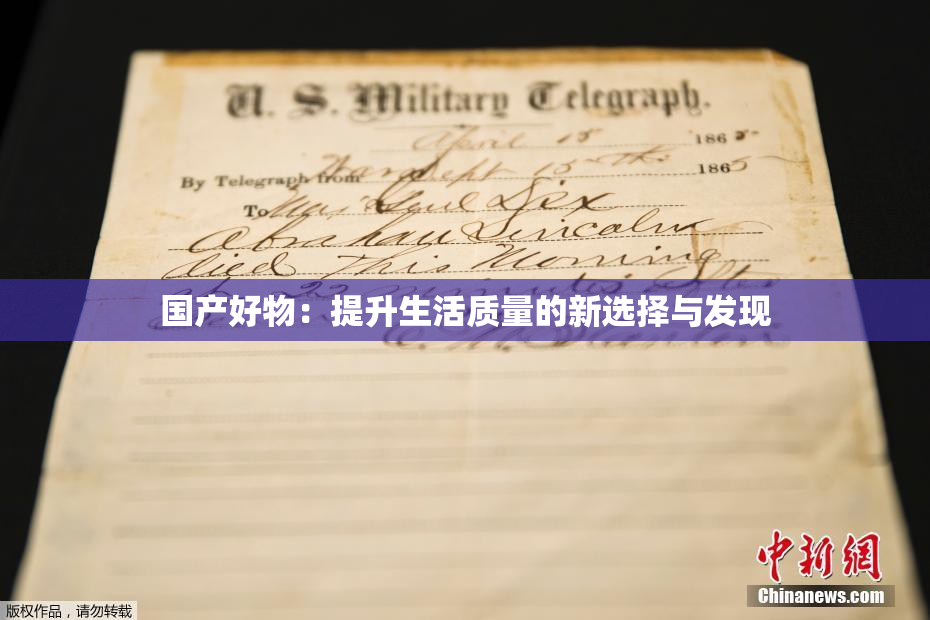 U. S. Military Telegraph.
April 15 1865
By Telegraph from War Dept 15th 1865
To Maj Genl Dix
Abraham Lincoln
died This Morning
at 22 minutes after
国产好物：提升生活质量的新选择与发现
E. M. Stanton
中新網
Chinanews.com
版权作品，请勿转载